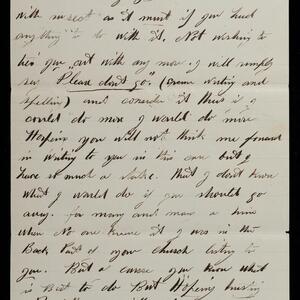 with neat as it must if you had
anything to do with it. Not wishing to
tier you out with any more I will simply
say Please dont go." (Drunk writing and
spelling) and consider it thus if I
could do more I would do more
Hopeing you will not think me foward
in writing to you in this case but I
have so much at stake. That I dont know
what I would do if you should go
away. for many and many a time
when No one knew it I was in the
Back Part of your church listing to
you. But of course you know what
is Best to do But Hopeing trusting